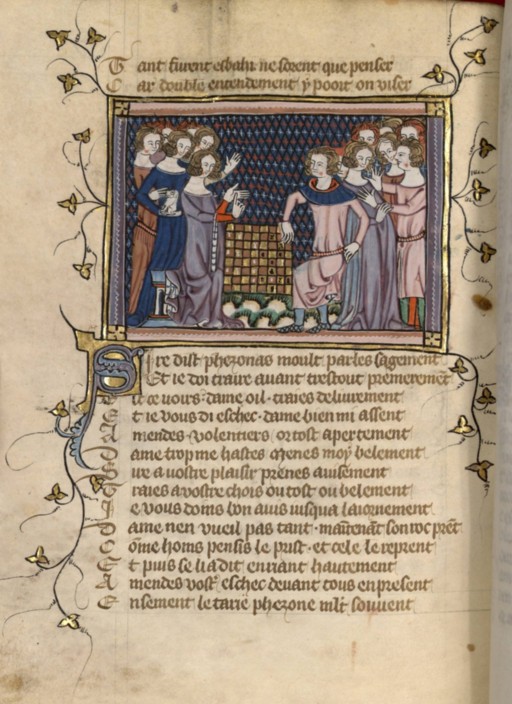 T ant furent esbahi ne sorent que penser
C ar double entendement y pooit on viser
S ire dist phezonas moult parles sagement
Et ie doi traire auant trestout premerement
ce uoirs dame oil traies deliurement
E t ie vous di eschec dame bien mi assent
A mendes volentiers or tost apertement
D ame trop me hastes menes moy belement
a uostre plaisir prenes auisement
T raies a vostre chois ou tost ou belement
I e vous doins bon auis iusqua laiornement
D ame nen vueil pas tant maintenant son roc prent
C ome homs pensis le prist et cele le reprent
E t puis se li a dit en riant hautement
A mendes vostre eschec deuant tous en present
E nsement le tarie phezone mlt souuent